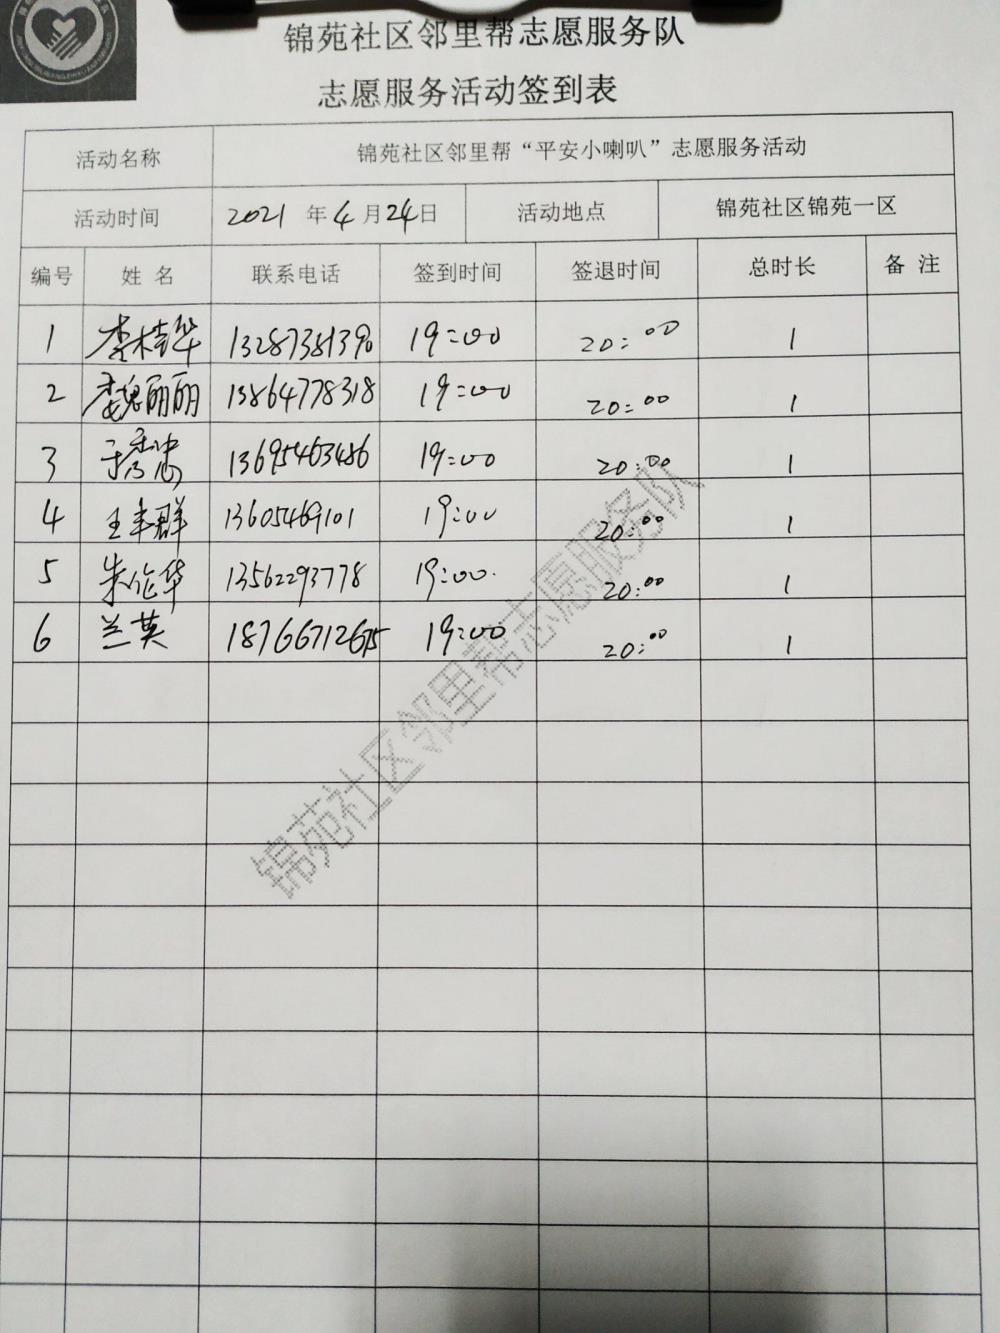 锦苑社区邻里帮志愿服务队
志愿服务活动签到表
活动名称 锦苑社区邻里帮“平安小喇叭”志愿服务活动
活动时间 2021 年 4 月 24 日 活动地点 锦苑社区锦苑一区
编号 姓 名 联系电话 签到时间 签退时间 总时长 备 注
1 李桂华 13287381390 19:00 20:00 1
2 魏丽丽 13864778318 19:00 20:00 1
3 于秀忠 13695463486 19:00 20:00 1
4 王丰群 13605469101 19:00 20:00 1
5 朱伦华 13562293778 19:00. 20:00 1
6 兰英 18766712675 19:00 20:00 1
锦苑社区邻里帮志愿服务队